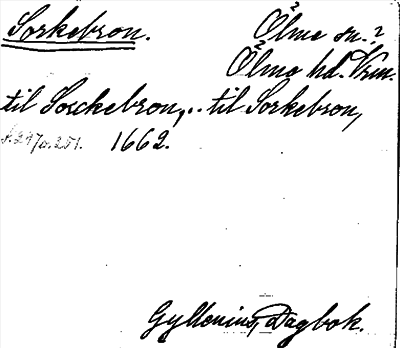 Sorkebron. Ölme sn.?
Ölme hd. Vrm.
til Sorckebron,.. til Sorkebron,
s. 297 o. 251. 1662.
Gyllenius, Dagbok.